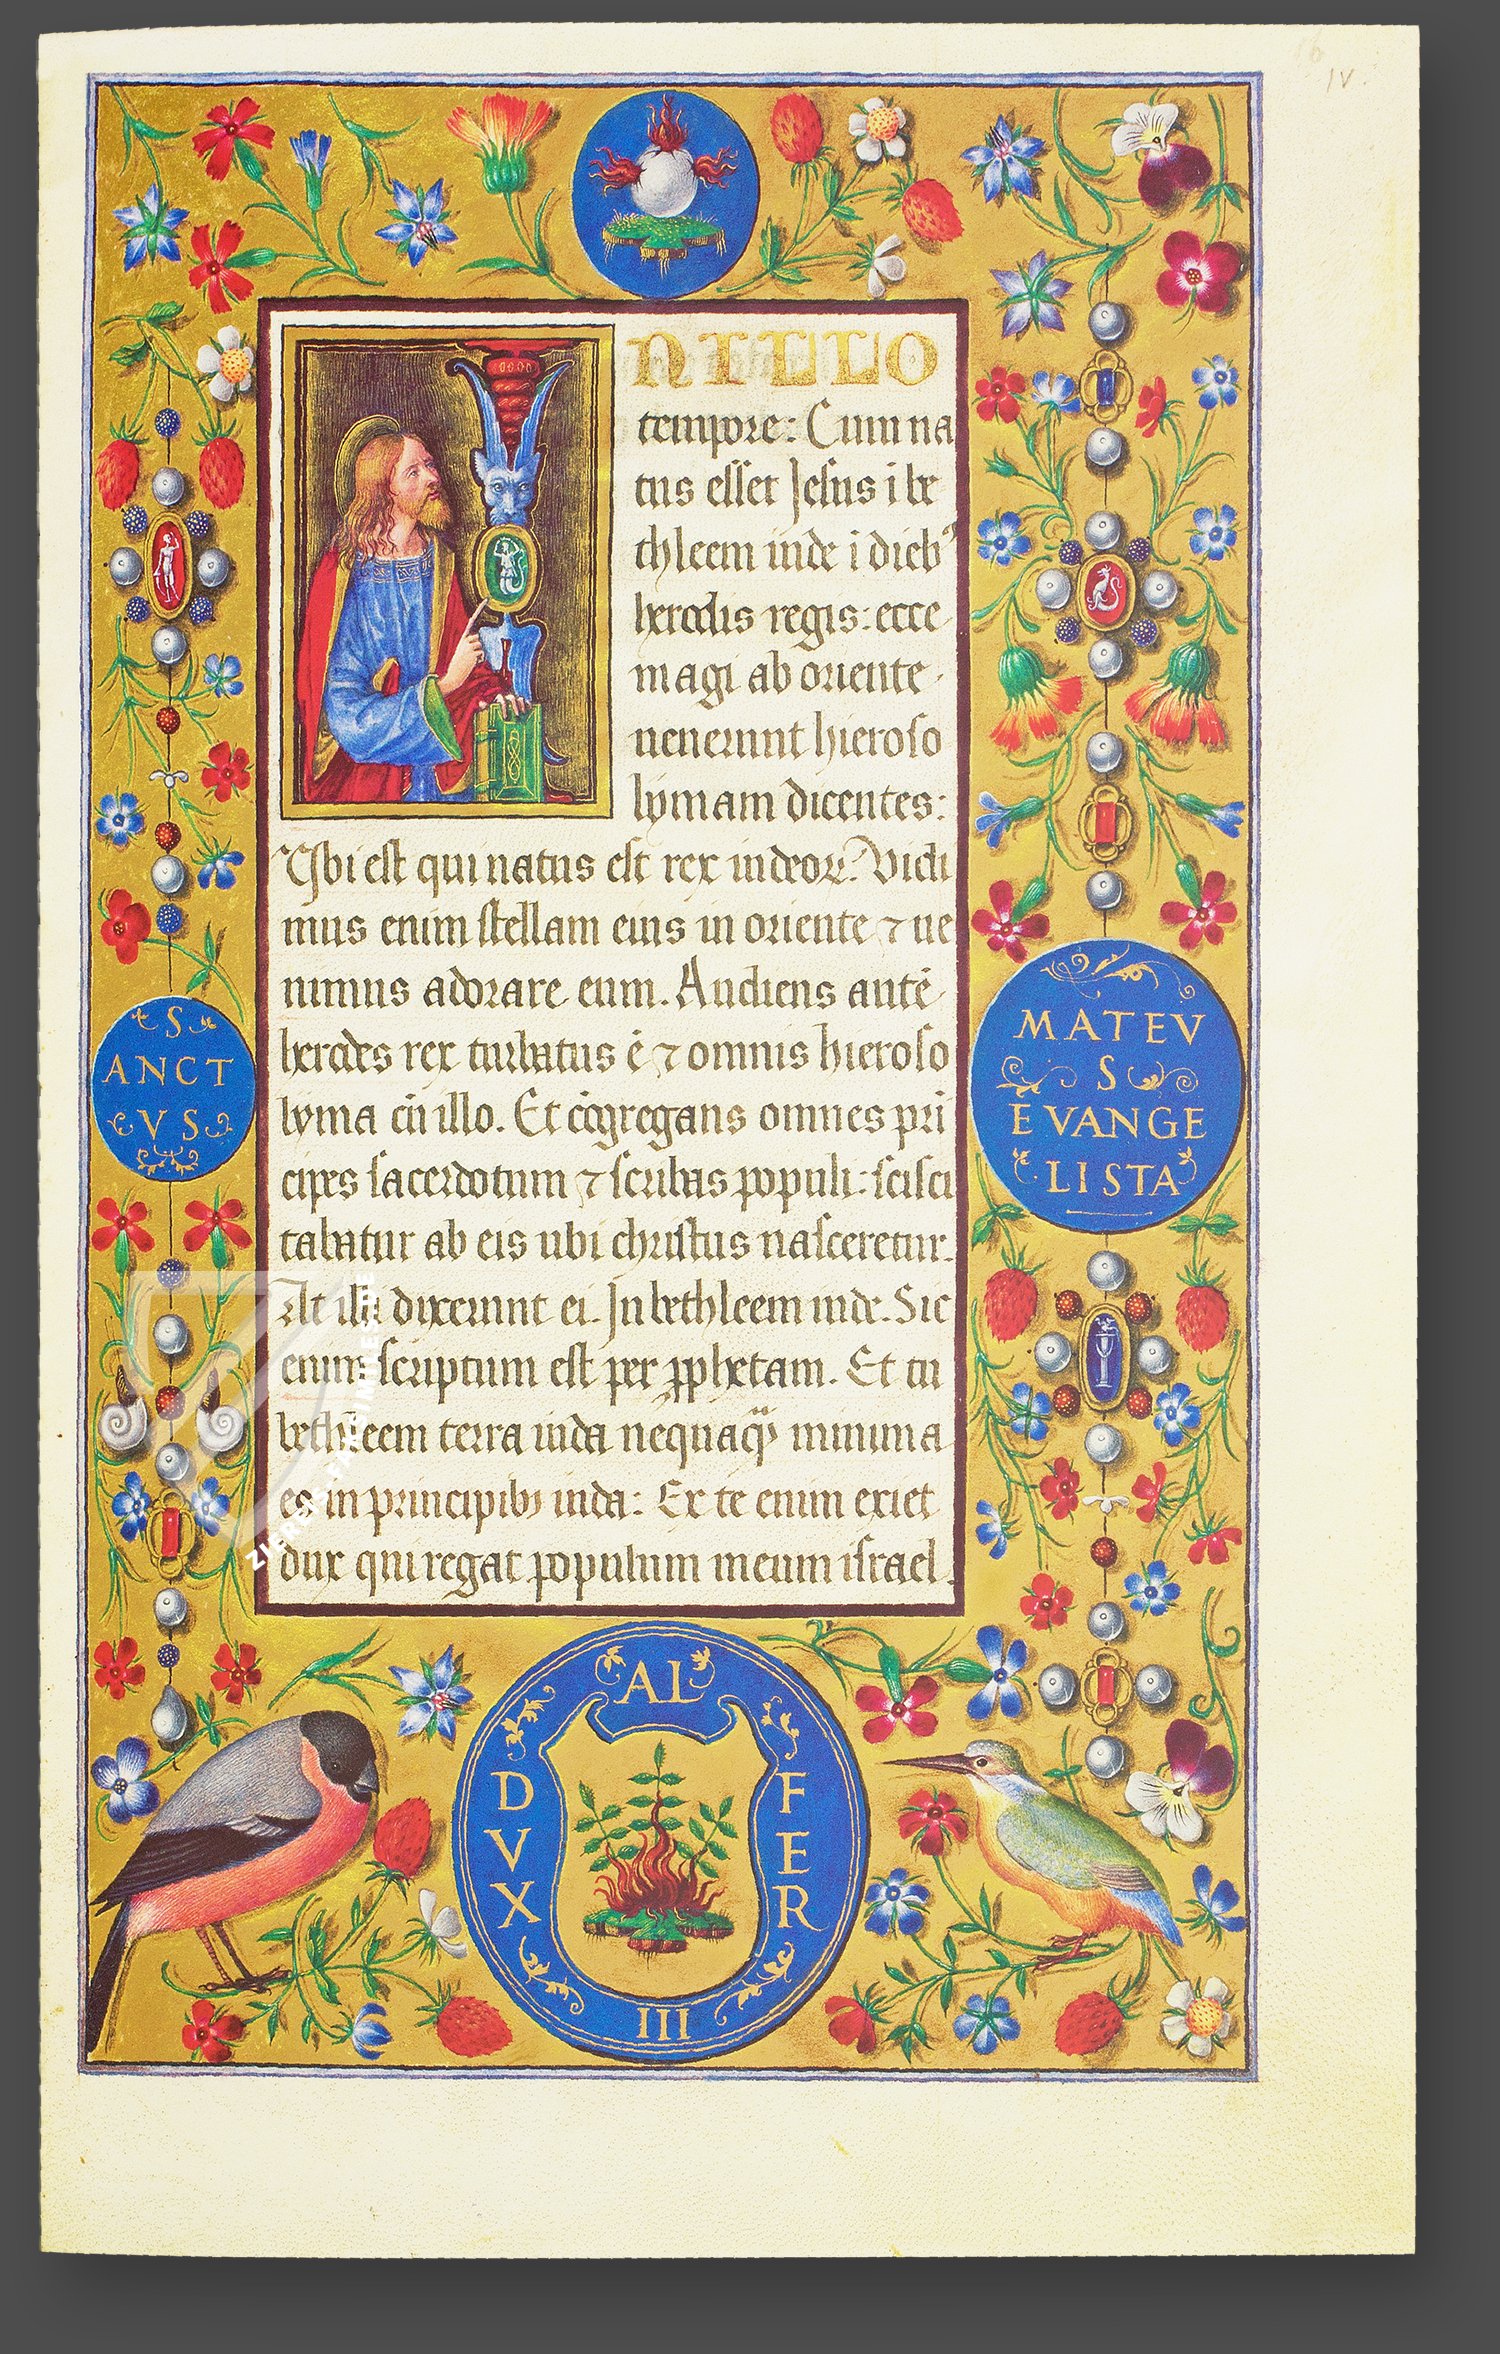 IV.
NILLO
tempore: Cum na
tus esset Jesus i be
thleem iude i dieb⁹
herodis regis: ecce
magi ab oriente
uenerunt hieroso
lymam dicentes:
Ubi est qui natus est rex iudeoꝝ? Vidi
mus enim stellam eius in oriente ⁊ ue
nimus adorare eum. Audiens autē
herodes rex turbatus ē ⁊ omnis hieroso
lyma cū illo. Et cōgregans omnes pri
cipes sacerdotum ⁊ scribas populi: scisci
tabatur ab eis ubi christus nasceretur.
At illi dixerunt ei. In bethleem iude. Sic
enim scriptum est per ꝓphetam. Et tu
bethleem terra iuda nequaꝙ minima
es in principibꝫ iuda: Ex te enim exiet
dux qui regat populum meum israel.
S
ANCT
VS
MATEV
S
EVANGE
LISTA
DVX
AL
FER
III
ZIEREIS FAKSIMILES